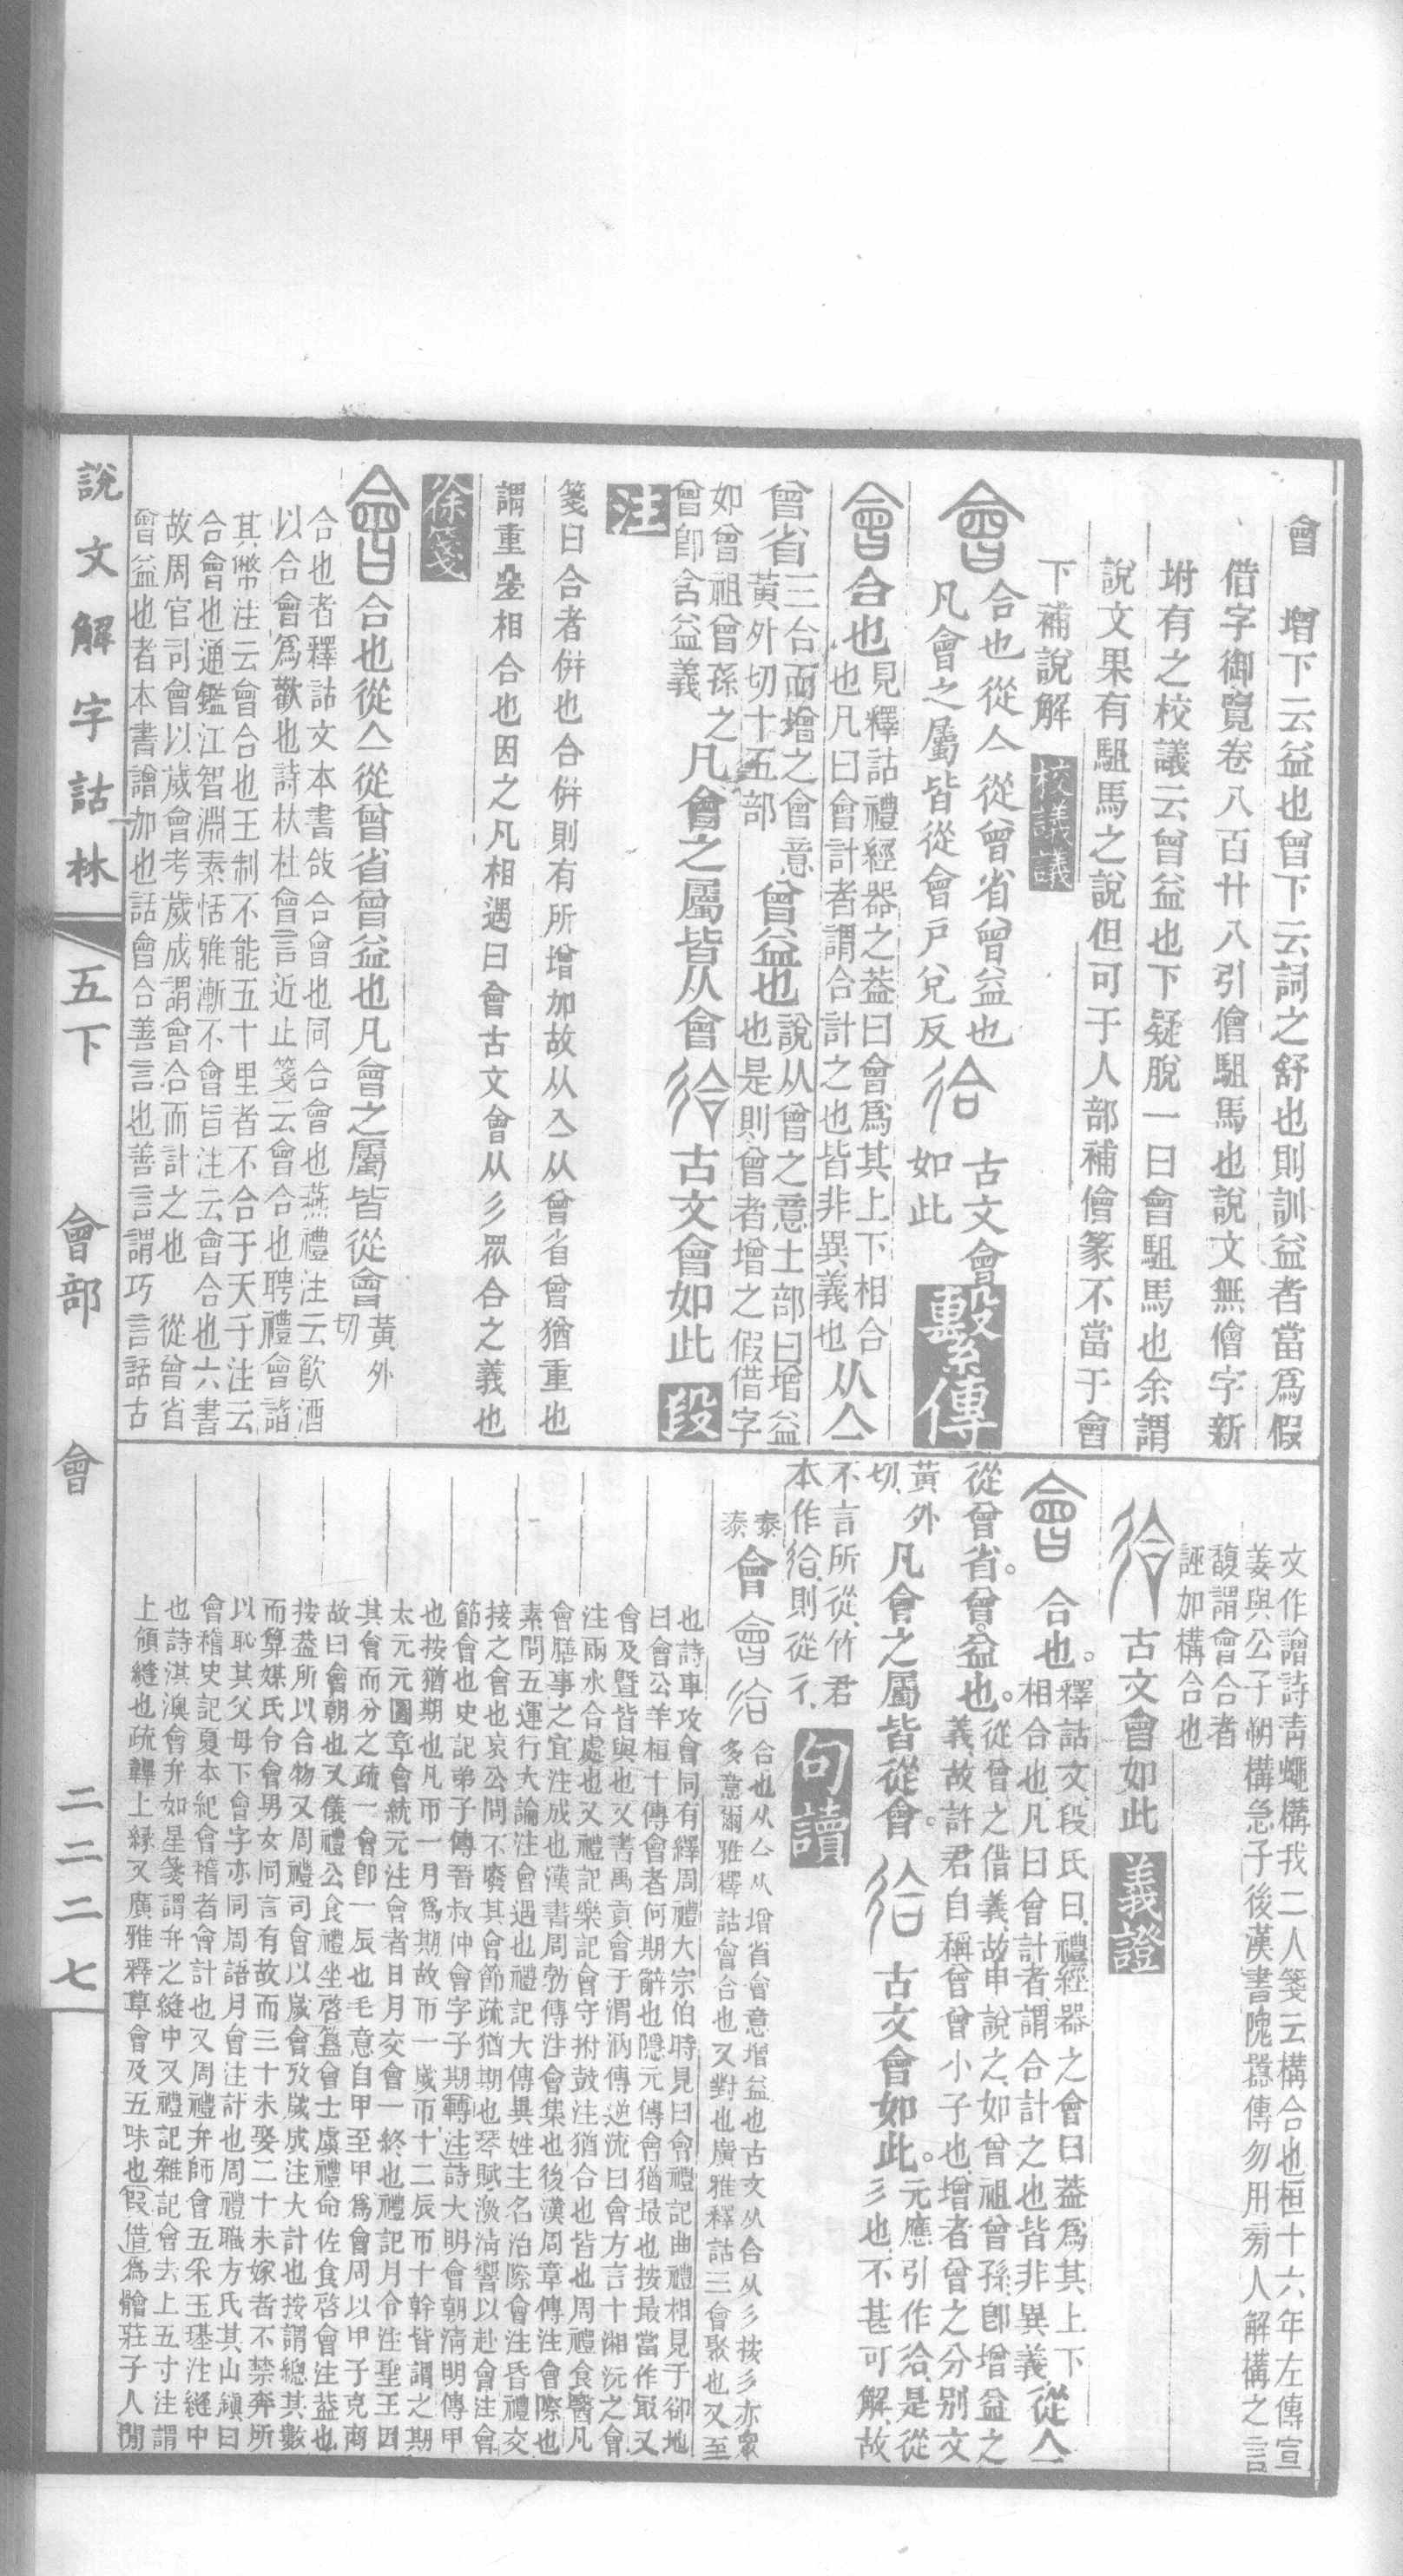 會　增下云益也曾下云詞之舒也則訓益者當爲假
借字御覽卷八百廿八引儈駔馬也說文無儈字新
坿有之校議云曾益也下疑脫一曰會駔馬也余謂
說文果有駔馬之說但可于人部補儈篆不當于會
下補說解　校議議
會　合也從亼從曾省曾益也
凡會之屬皆從會戶兌反
㣛　古文會
如此　繫傳
會合也
見釋詁禮經器之蓋曰會爲其上下相合
也凡曰會計者謂合計之也皆非異義也
从亼
曾省
三合而增之會意
黃外切十五部
曾益也
說从曾之意土部曰增益
也是則曾者增之假借字
如曾祖曾孫之
曾卽含益義
凡會之屬皆从會　㣛　古文會如此　段
注
箋曰合者併也合併則有所增加故从亼从曾省曾猶重也
謂重曡相合也因之凡相遇曰會古文會从彡眾合之義也
徐箋
會合也從亼從曾省曾益也凡會之屬皆從會
黃外
切
合也者釋詁文本書敆合會也同合會也燕禮注云飮酒
以合會爲歡也詩杕杜會言近止箋云會合也聘禮會諸
其幣注云會合也王制不能五十里者不合于天子注云
合會也通鑑江智淵素恬雅漸不會旨注云會合也六書
故周官司會以歲會考歲成謂會合而計之也　從曾省
曾益也者本書譄加也話會合善言也善言謂巧言話古
文作譮詩靑蠅構我二人箋云構合也桓十六年左傳宣
姜與公子朔構急子後漢書隗囂傳勿用㫄人解構之言
馥謂會合者
誣加構合也
㣛　古文會如此　義證
會　合也。
釋詁文、段氏曰、禮經器之會曰蓋爲其上下
相合也、凡曰會計者、謂合計之也、皆非異義、
從亼
從曾省。曾益也。
從曾之借義、故申說之、如曾祖曾孫卽增益之
義、故許君自稱曾曾小子也、增者曾之分別文
黃外
切、
凡會之屬皆從會。　㣛　古文會如此。
元應引作㣛、是從
彡也、不甚可解、故
不言所從、竹君
本作㣛、則從彳、
句讀
泰
泰
會　會　㣛
合也从亼从增省會意增益也古文从合从彡按彡亦衆
多意爾雅釋詁會合也又對也廣雅釋詁三會聚也又至
也詩車攻會同有繹周禮大宗伯時見曰會禮記曲禮相見于卻地
曰會公羊桓十傳會者何期辭也隱元傳會猶最也按最當作冣又
會及曁皆與也又書禹貢會于渭汭傳逆流曰會方言十湘沅之會
注兩水合處也又禮記樂記會守拊鼓注猶合也皆也周禮食醫凡
會膳事之宜注成也漢書周勃傳注會集也後漢周章傳注會際也
素問五運行大論注會遇也禮記大傳異姓主名治際會注昏禮交
接之會也哀公問不廢其會節疏猶期也琴賦激淸響以赴會注會
節會也史記弟子傳晉叔仲會字子期轉注詩大明會朝淸明傳甲
也按猶期也凡帀一月爲期故帀一歲帀十二辰帀十幹皆謂之期
太元元圖章會統元注會者日月交會一終也禮記月令注聖王因
其會而分之疏一會卽一辰也毛意自甲至甲爲會周以甲子克商
故曰會朝也又儀禮公食禮坐啓簋會士虞禮命佐食啓會注蓋也
按蓋所以合物又周禮司會以歲會攷歲成注大計也按謂總其數
而算媒氏令會男女同言有故而三十未娶二十未嫁者不禁奔所
以恥其父母下會字亦同周語月會注計也周禮職方氏其山鎭曰
會稽史記夏本紀會稽者會計也又周禮弁師會五采玉璂注縫中
也詩淇澳會弁如星箋謂弁之縫中又禮記雜記會去上五寸注謂
上領縫也疏韠上緣又廣雅釋草會及五味也假借爲髻莊子人閒
說文解字詁林　五下　會部　會　二二二七